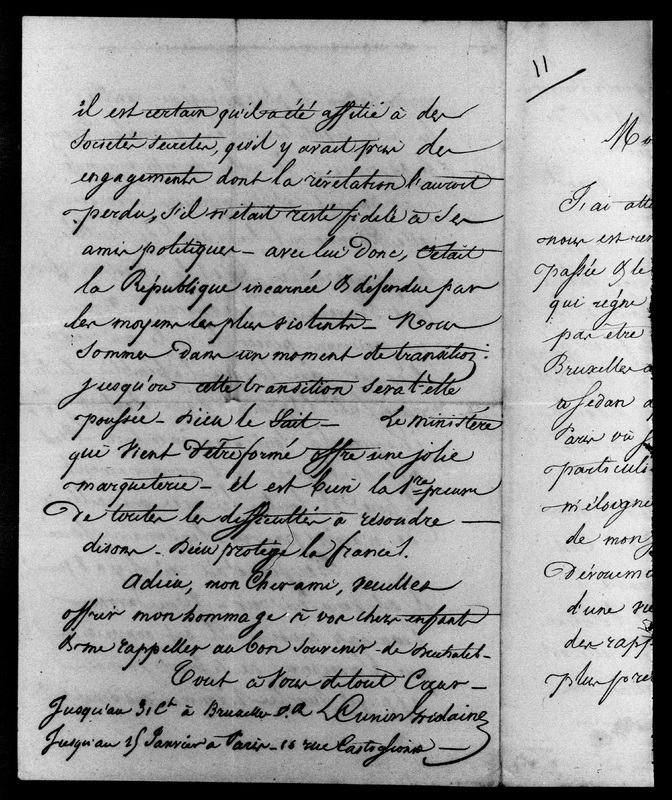 il est certain qu'il a été affilié à des
Societés Secretes, qu'il y avait pris des
engagements dont la révélation l'auroit
perdu, s'il n'était resté fidele à ses
amis politiques - avec lui Donc, c'était
la République incarnée & défendue par
les moyens les plus violents - Nous
Sommes Dans un moment de transition.
jusqu'ou cette transition sera t'elle
poussée - Dieu le Sait - Le Ministère
qui vient d'être formé offre une jolie
marqueterie - et est bien la 1re preuve
De toutes les difficultés à resoudre -
disons - Dieu protège la france!.
Adieu, mon Cher ami, veuillez
offrir mon hommage à vos chers enfants
& me rappeller au bon Souvenir de
Tout à Vous de tout Cœur -
L Cunin Gridaine
Jusqu'au 31 Ct à Bruxelles
Jusqu'au 15 Janvier à Paris - 16 rue Castiglione -
11
J'ai
nous est
passée & le
qui règne
par être
Bruxelles
a Sedan
Paris où
m'éloigne
de mon
d'une
des
plus